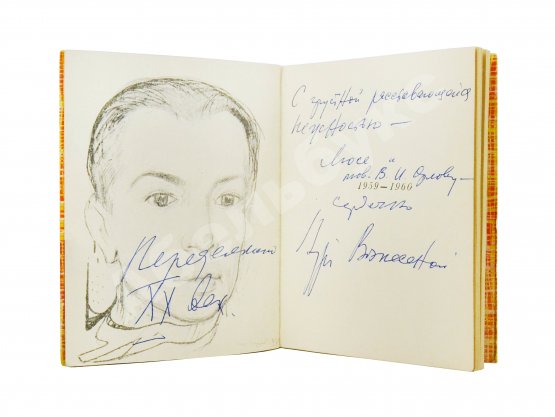 Переделкино
XX век.
С грустной
нежностью —
Люсе и
тов. В. И. Орлову —
1959—1960
сердечно
Вознесенский